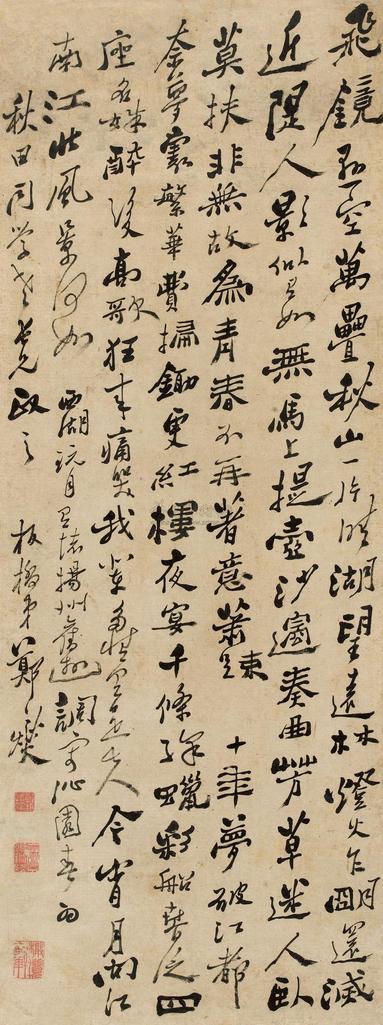 飛鏡懸空萬疊秋山一片晴湖望遠林燈火乍明還滅
近隄人影似有如無馬上提壺沙邊奏曲芳草迷人臥
莫扶非無故為青春不再著意蕭疎十年夢破江都
奈夢裏繁華費掃鋤更紅樓夜宴千條絳蠟彩船春泛四
座名姝醉後高歌狂來痛哭我輩多情有是夫今宵月問江
南江北風景何如西湖玩月有懷揚州舊遊調寄沁園春為
秋田同學老長兄政之板橋弟鄭燮